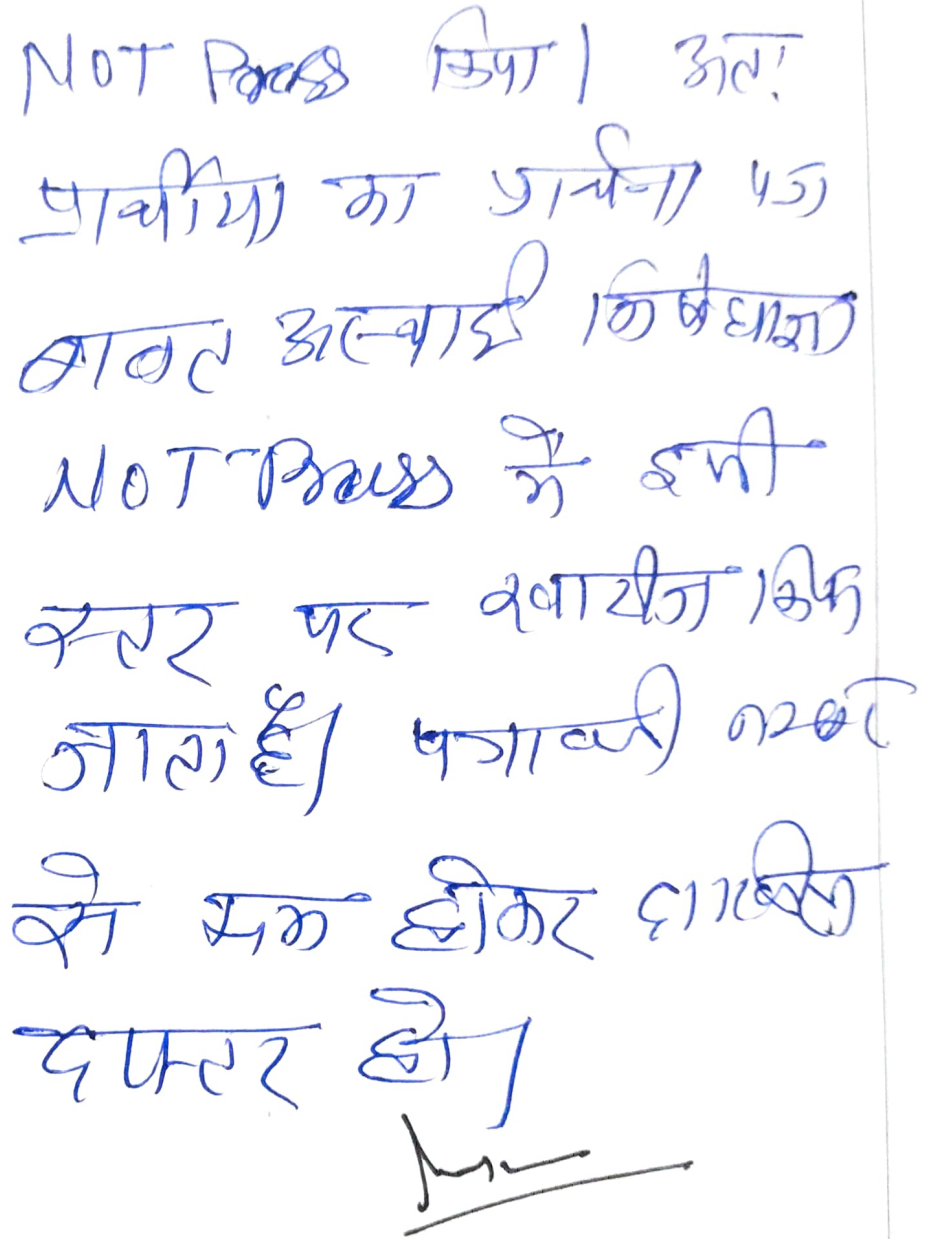 NOT Press किया। अतः
प्रार्थीया का प्रार्थना पत्र
बाबत अस्थाई निषेधाज्ञा
NOT Press में इसी
स्तर पर खारीज किया
जाता है। पत्रावली नम्बर
से कम होकर दाखिल
दफ्तर हो।